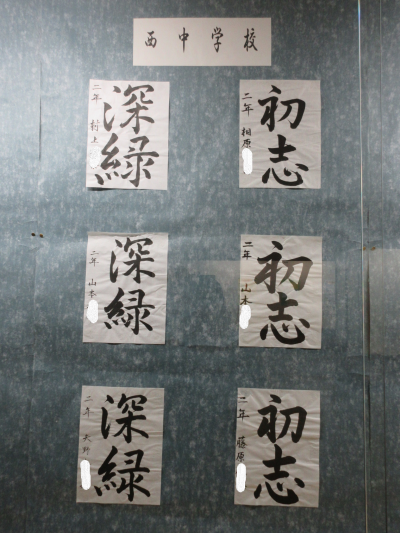 西中学校
初志
二年 相原
深緑
二年 村上
初志
二年 山本
深緑
二年 山本
初志
二年 藤原
深緑
二年